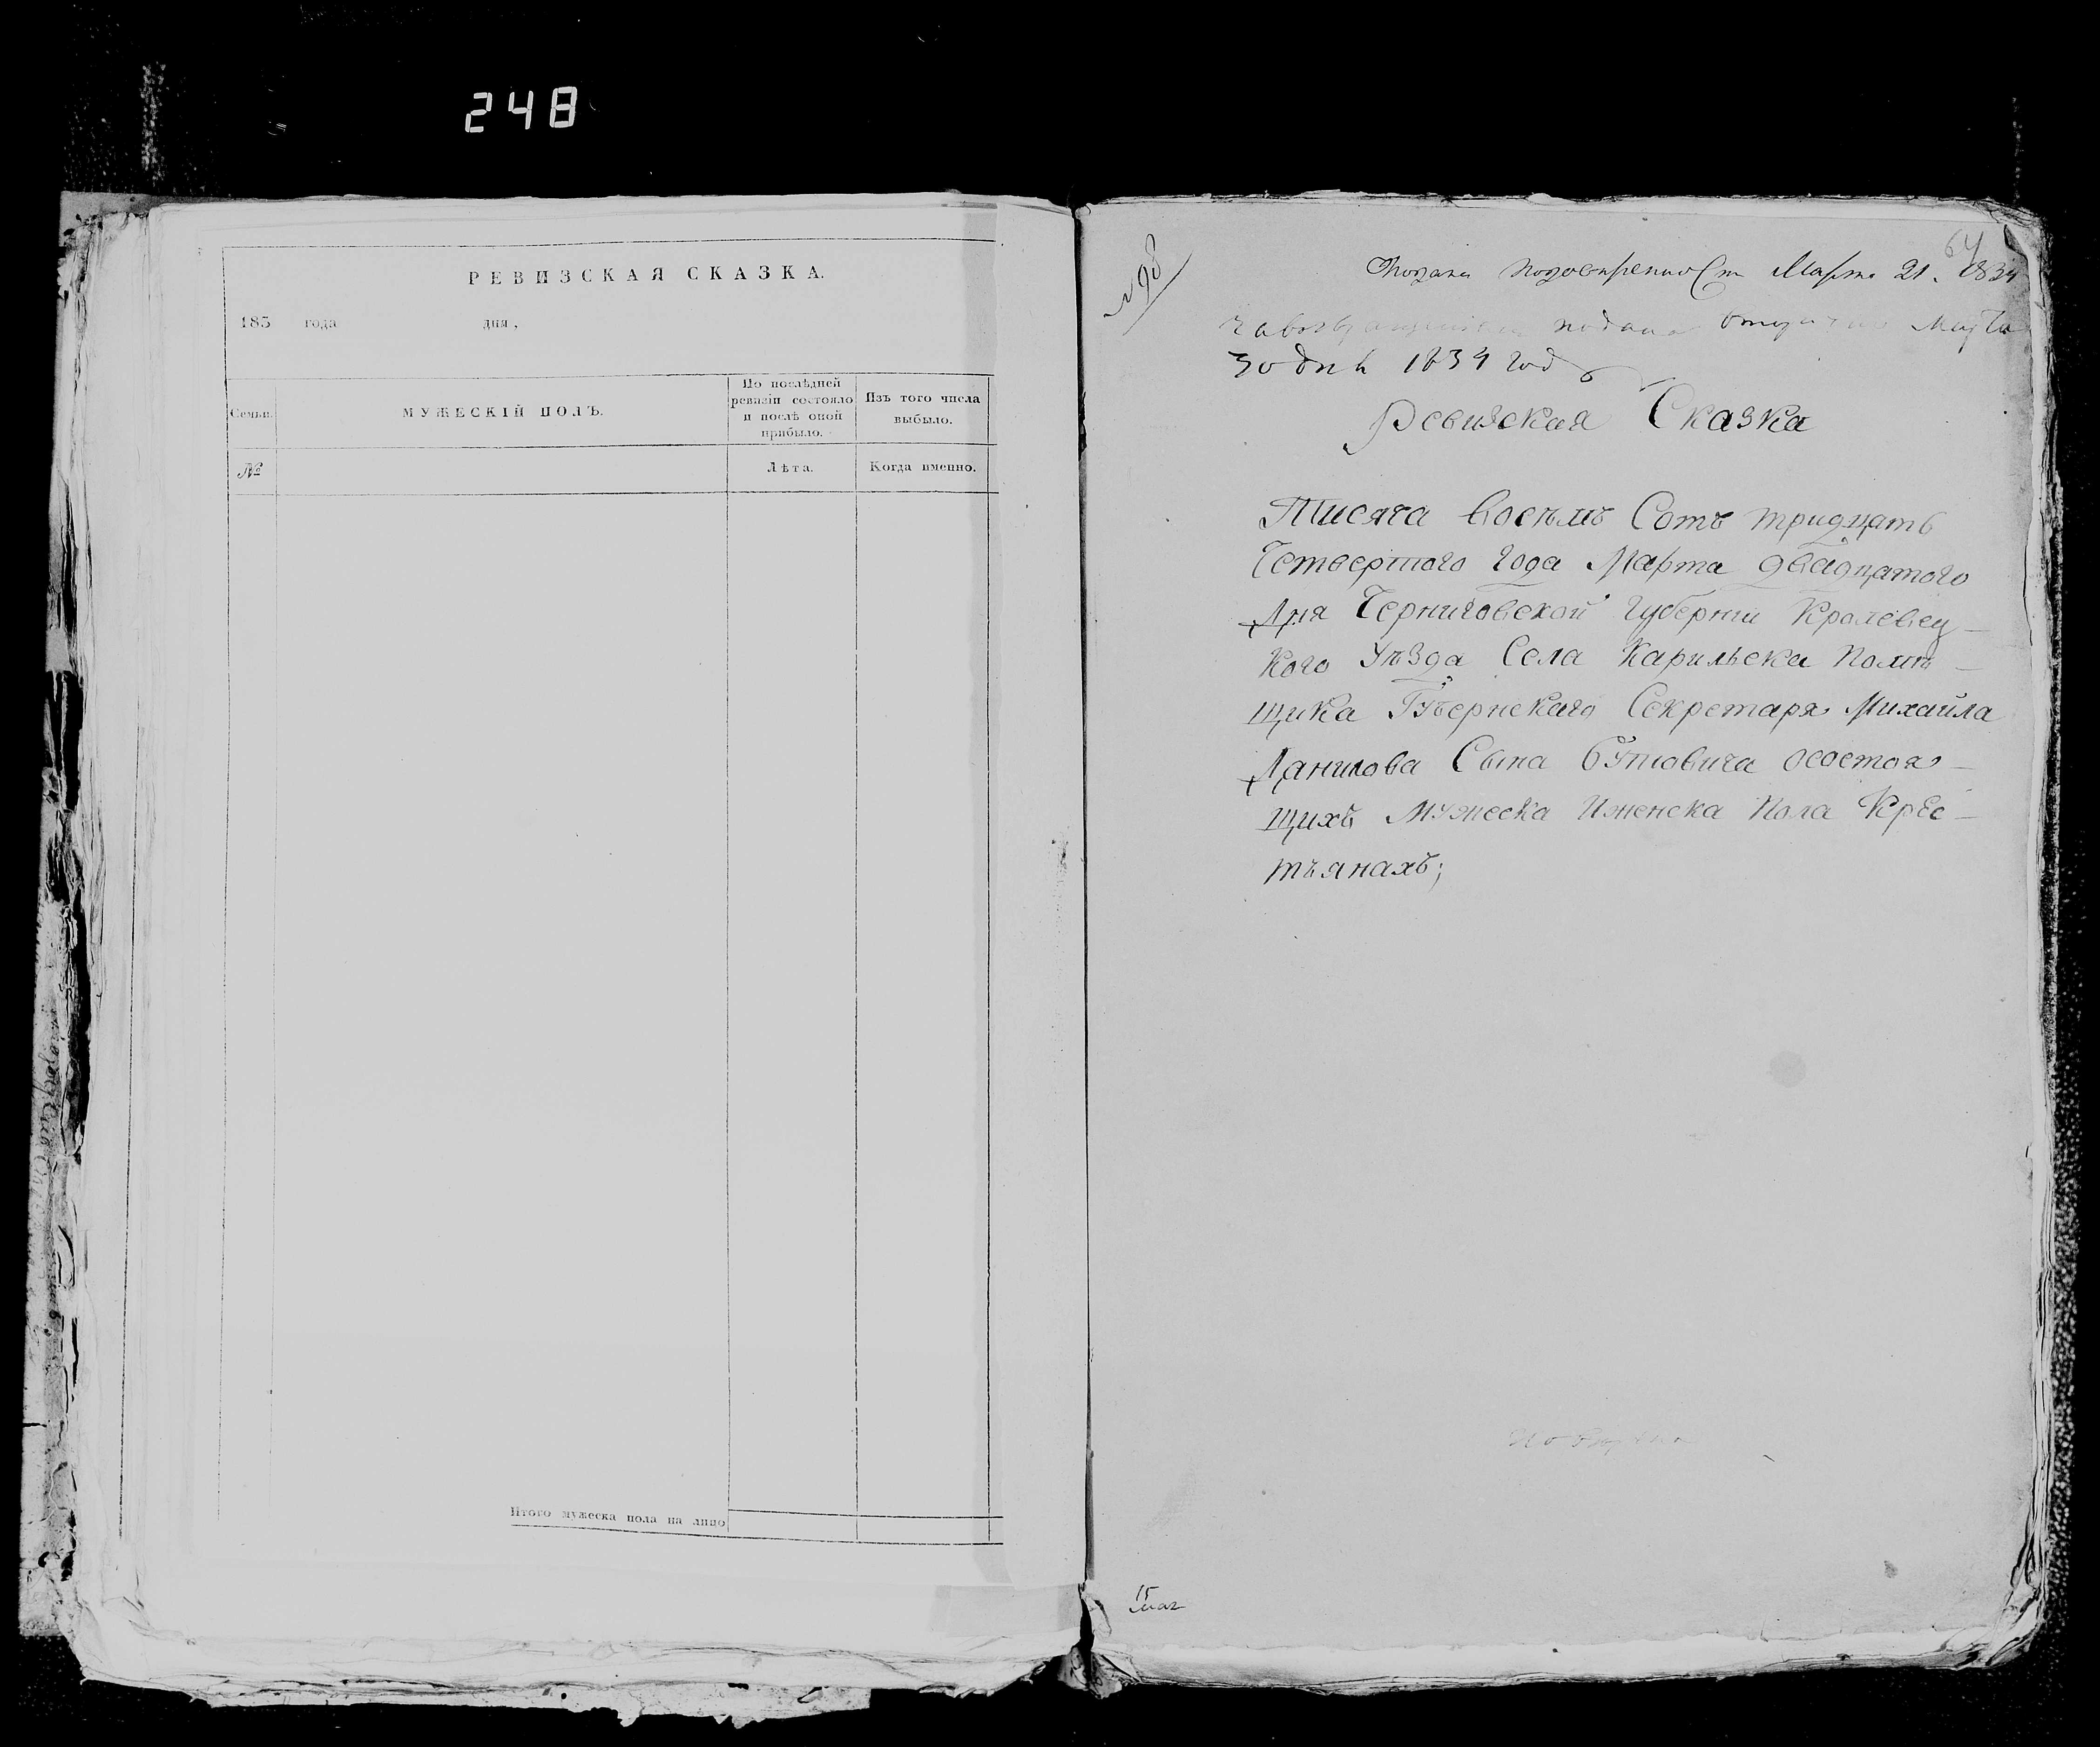 248
РЕВИЗСКАЯ СКАЗКА.
183 года дня,
Семьи.
МУЖЕСКІЙ ПОЛЪ.
По послѣдней ревизіи состояло и послѣ оной прибыло.
Изъ того числа выбыло.
№
Лѣта.
Когда именно.
Итого мужеска пола на лицо
64
№ 98
Марта 21. 1834
подана
30 дня 1834 год
Ревизская Сказка
Тисяча восемъ Сотъ тридцать
Четвертого года Марта двадцатого
Дня Черниговской Губерни Кролевец-
кого Уѣзда Села Карильска Помѣ-
щика Губернскаго Секретаря Михайла
Данилова Сына Бутовича осостоя-
щихъ Мужеска Иженска Пола Крес-
тьянахъ;
15